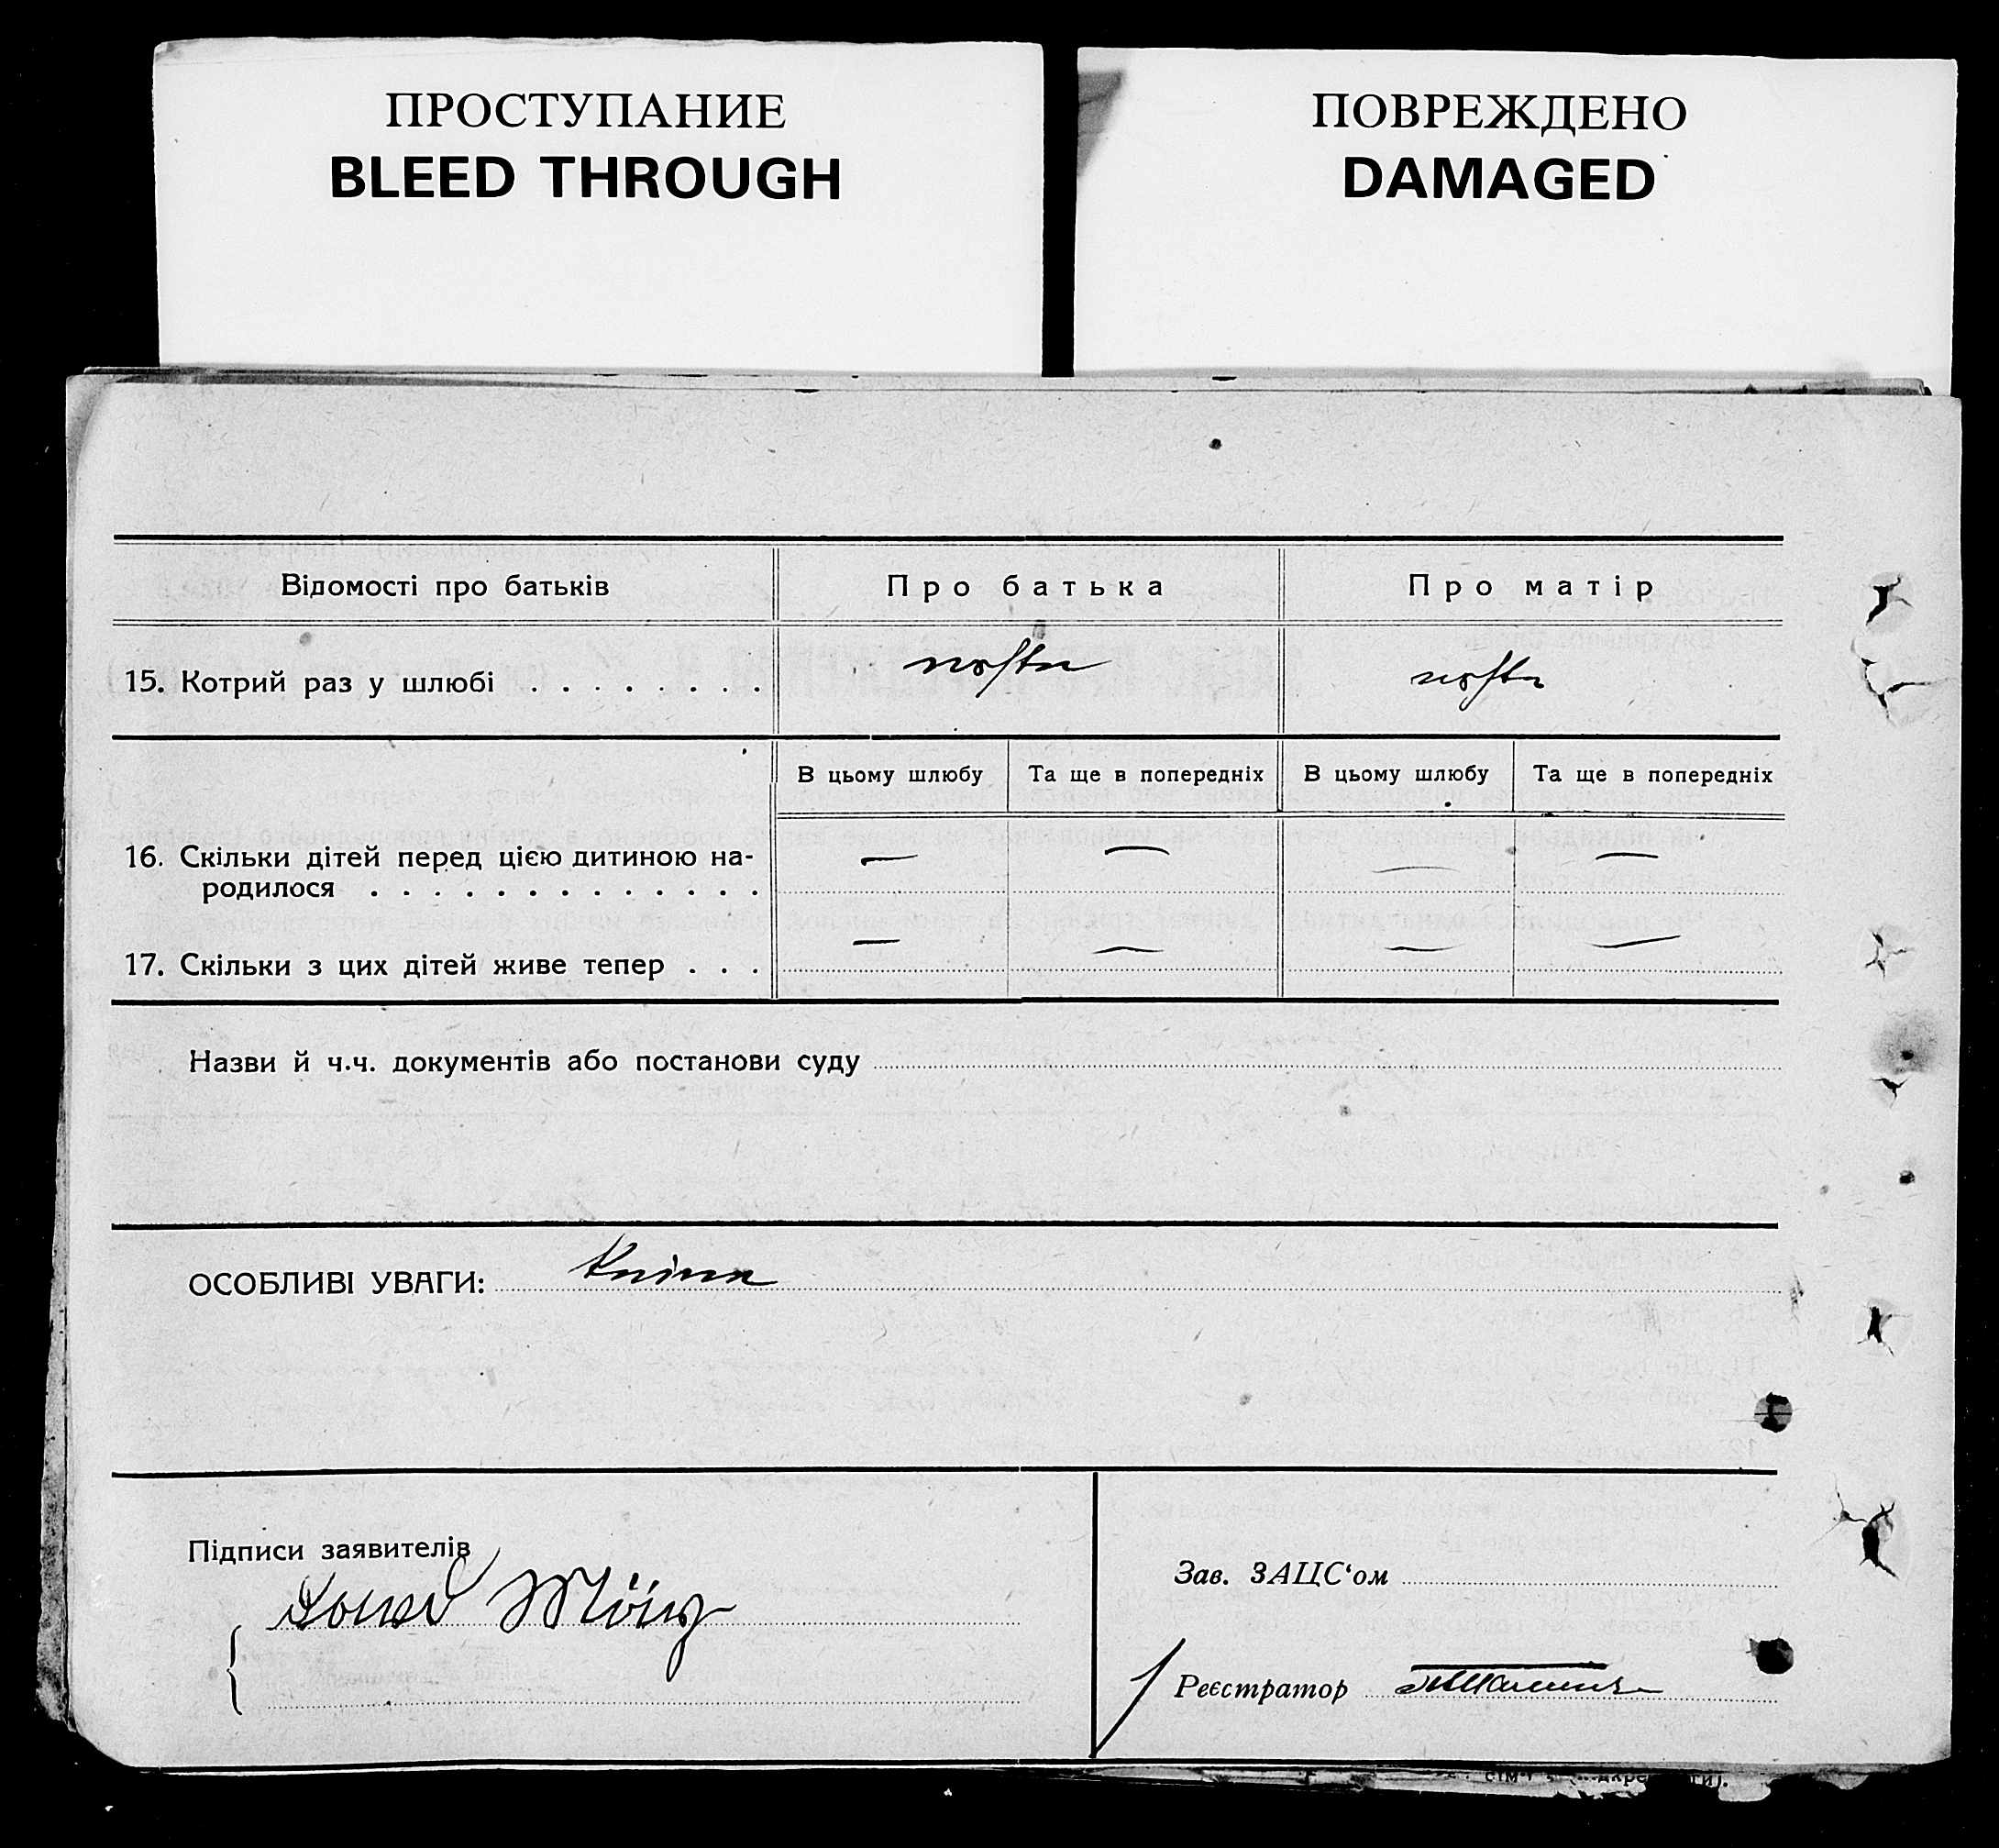 ПРОСТУПАНИЕ
BLEED THROUGH
ПОВРЕЖДЕНО
DAMAGED
Відомості про батьків
Про батька
Про матір
15. Котрий раз у шлюбі . . . . . . . .
В цьому шлюбу
Та ще в попередніх
В цьому шлюбу
Та ще в попередніх
16. Скільки дітей перед цією дитиною на-
— — — —
родилося . . . . . . . . . . . . .
17. Скільки з цих дітей живе тепер . . .
— — — —
Назви й ч.ч. документів або постанови суду
ОСОБЛИВІ УВАГИ:
Підписи заявителів
Зав. ЗАЦС‘ом
Реєстратор